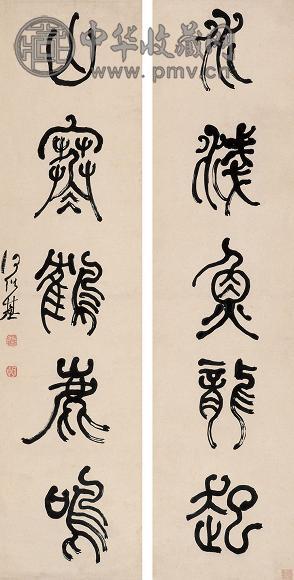 中华收藏网
www.pmv.cn
水淺魚龍起
山寒鶴鹿鳴
何紹基